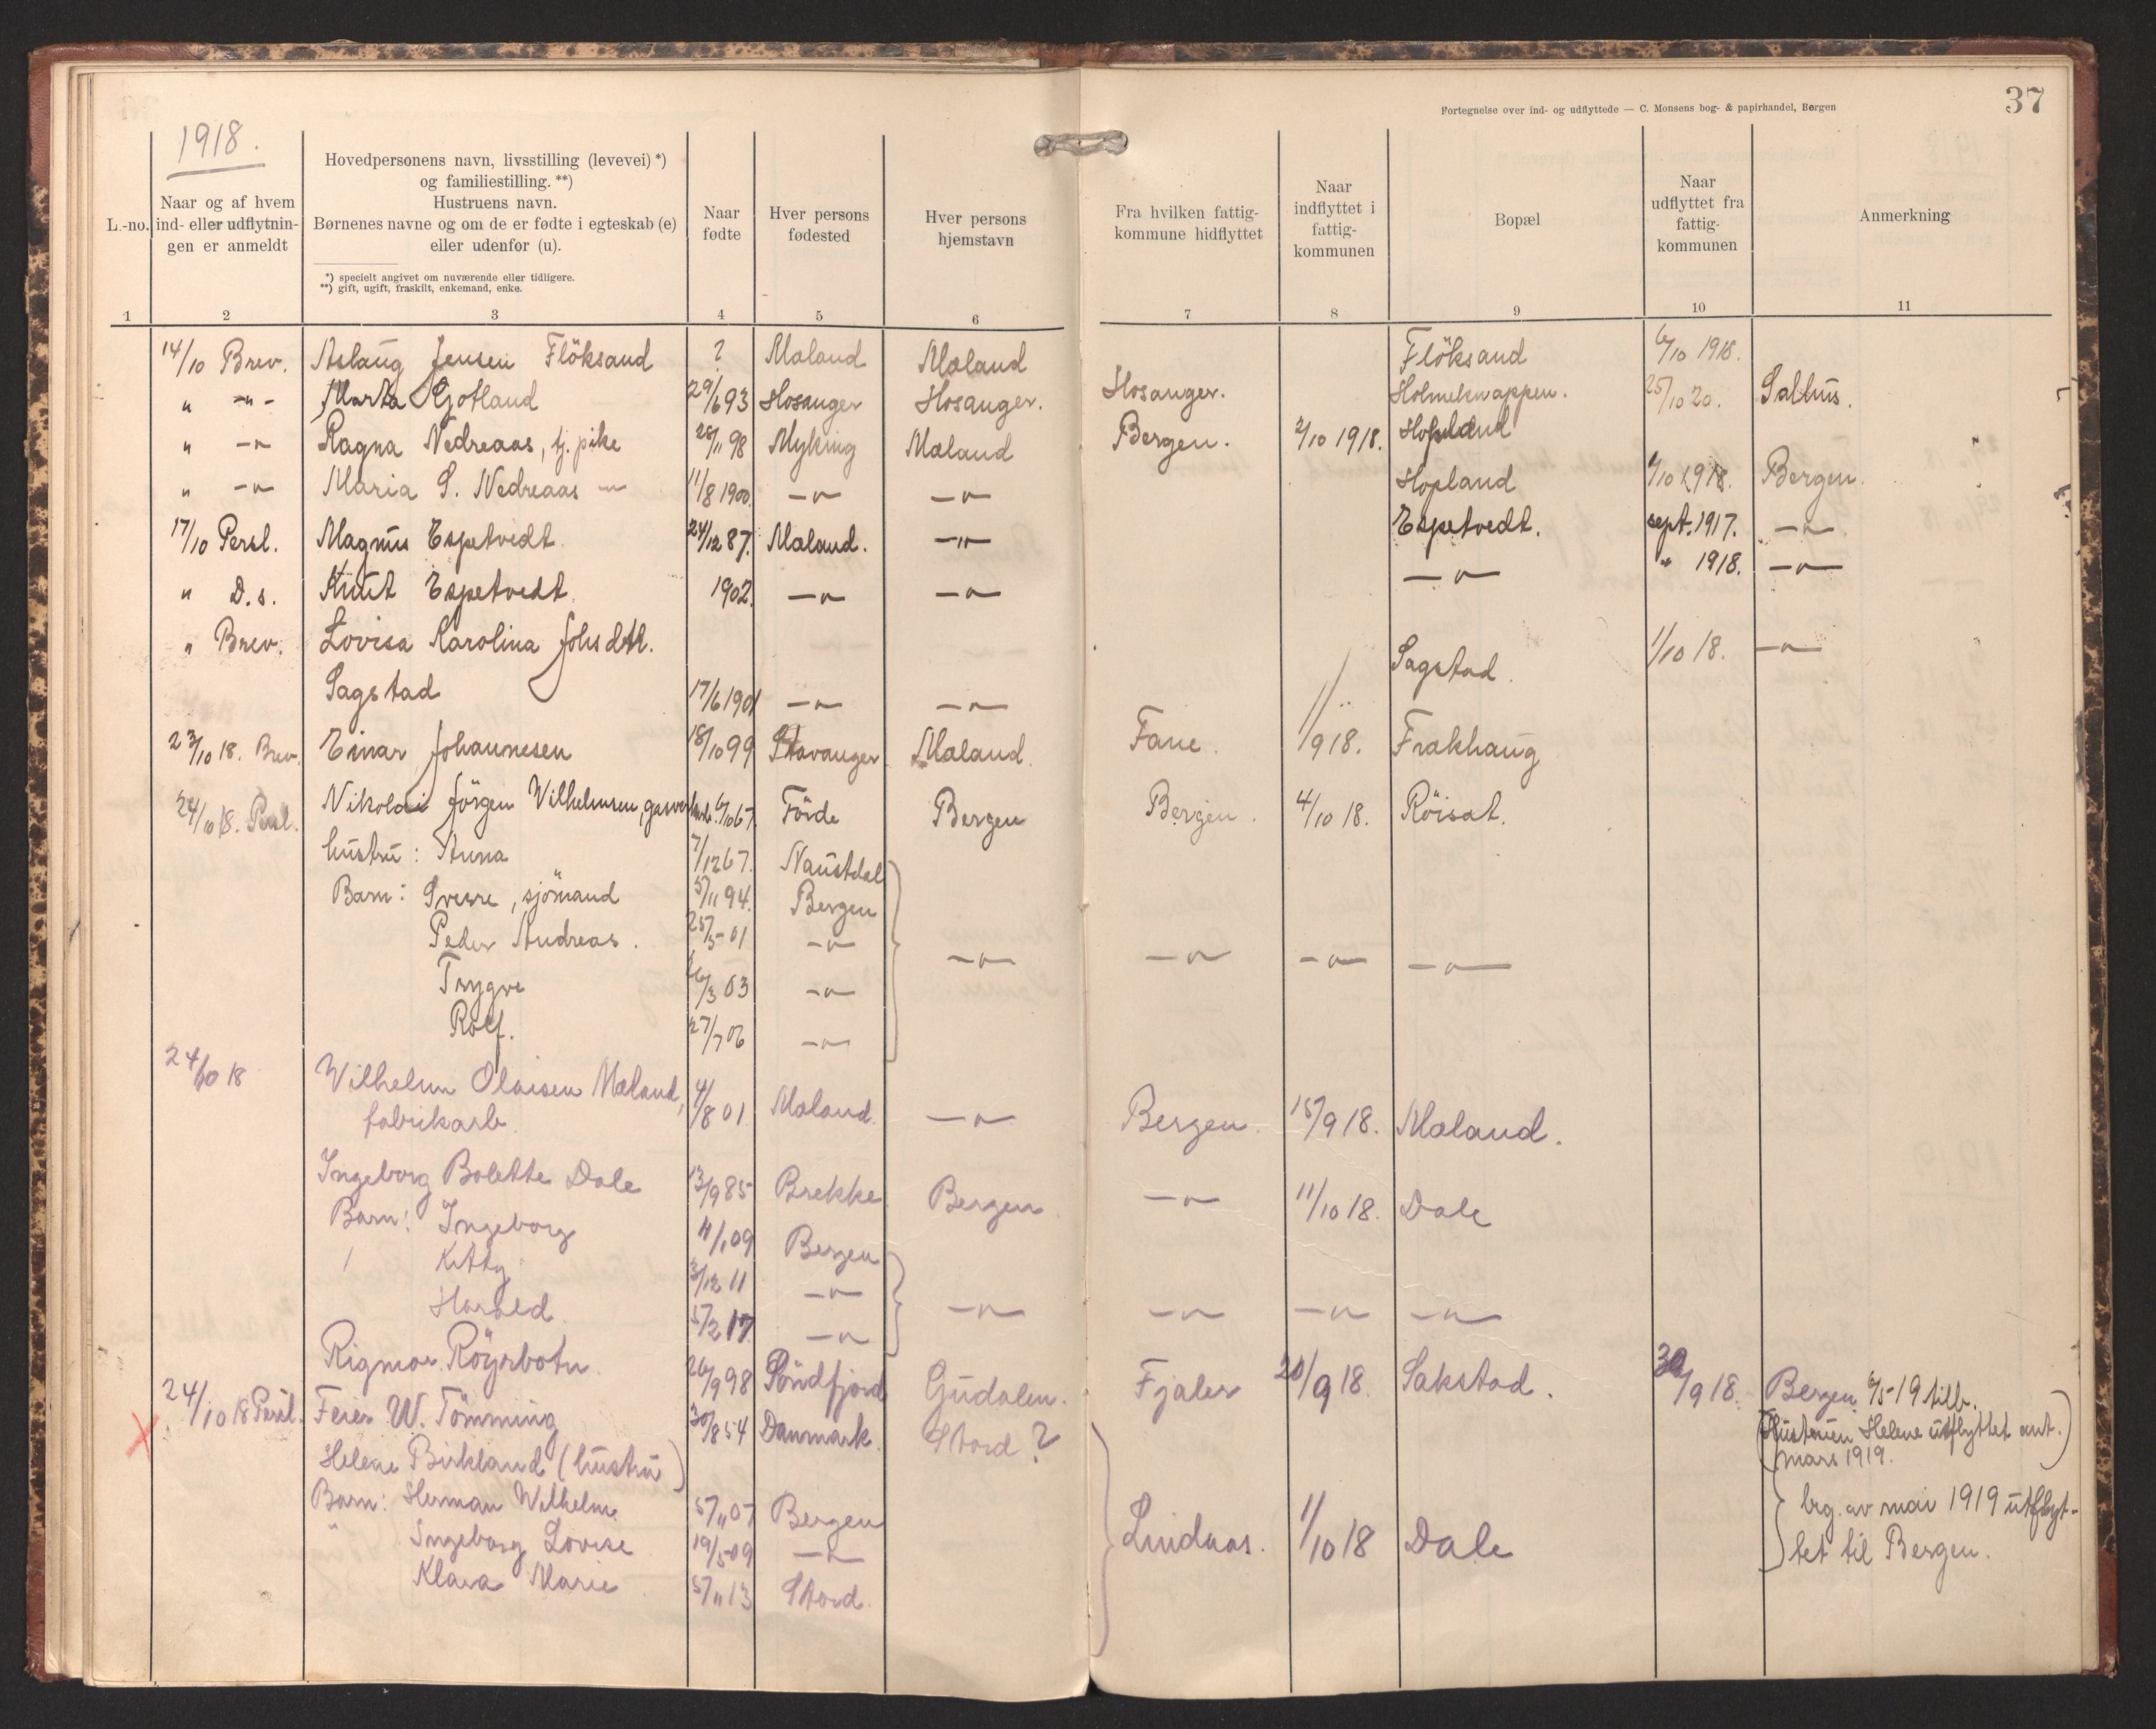 Fortegnelse over ind- og udflyttede — C. Monsens bog- & papirhandel, Bergen
37
1918.
L.-no.
Naar og af hvem ind- eller udflytningen er anmeldt
Hovedpersonens navn, livsstilling (levevei) *) og familiestilling. **)
Hustruens navn.
Børnenes navne og om de er fødte i egteskab (e) eller udenfor (u).
*) specielt angivet om nuværende eller tidligere.
**) gift, ugift, fraskilt, enkemand, enke.
Naar fødte
Hver persons fødested
Hver persons hjemstavn
Fra hvilken fattigkommune hidflyttet
Naar indflyttet i fattigkommunen
Bopæl
Naar udflyttet fra fattigkommunen
Anmerkning
1 2 3 4 5 6 7 8 9 10 11
14/10 Brev. Aslaug Jensen Flöksand ? Mæland Mæland Flöksand 6/10 1918.
" -"- Marta Kjotland 29/6 93 Hosanger Hosanger. Hosanger. Holmeknappen. 25/10 20. Salhus.
" -"- Ragna Nedreaas, tj. pike 28/11 98 Myking Mæland Bergen. 2/10 1918. Hopland
" -"- Maria S. Nedreaas -"- 11/8 1900. -"- -"- Hopland 1/10 1918. Bergen.
17/10 Persl. Magnus Espetvedt. 24/12 87. Mæland. -"- Espetvedt. sept. 1917. -"-
" D.s. Knut Espetvedt. 1902. -"- -"- -"- " 1918. -"-
" Brev. Lovisa Karolina Johsdtr.
Sagstad 17/6 1901 -"- -"- Sagstad. 1/10 18. -"-
23/10 18. Brev. Einar Johannesen 18/10 99 Stavanger Mæland. Fane. 1/9 18. Frækhaug
24/10 18. Persl. Nikolai Jörgen Wilhelmsen, 6/10 67. Förde Bergen Bergen. 4/10 18. Röisæt.
hustru: Anna 7/12 67. Naustdal
Barn: Sverre, sjömand 5/11 94. Bergen
Peder Andreas. 25/5 - 01 -"- -"- -"- -"- -"-
Trygve 26/3 03 -"-
Rolf. 27/7 06 -"-
24/10 18 Wilhelm Olaisen Mæland, 4/8 01 Mæland. -"- Bergen. 15/9 18. Mæland.
fabrikarb.
Ingeborg Bolette Dale 13/9 85 Brekke Bergen. -"- 11/10 18. Dale
Barn: Ingeborg 4/1 09 Bergen
Kitty 3/12 11 -"- -"- -"- -"- -"-
Harald. 5/2 17 -"-
Rigmor Röyrbotn. 26/9 98 Söndfjord Gudalen. Fjaler 20/9 18. Sakstad. 30/9 18. Bergen. 6/5-19 tilb.
24/10 18 Persl. Feier W. Tömming 30/8 54 Danmark. Stord?
(Hustruen Helene utflyttet ant. mars 1919.)
Helene Birkland (hustru)
Barn: Herman Wilhelm 5/11 07 Bergen Lindaas. 1/10 18 Dale beg. av mai 1919 utflyt-
Ingeborg Lovise 19/5 09 -"- tet til Bergen.
Klara Marie 5/11 13 Stord.